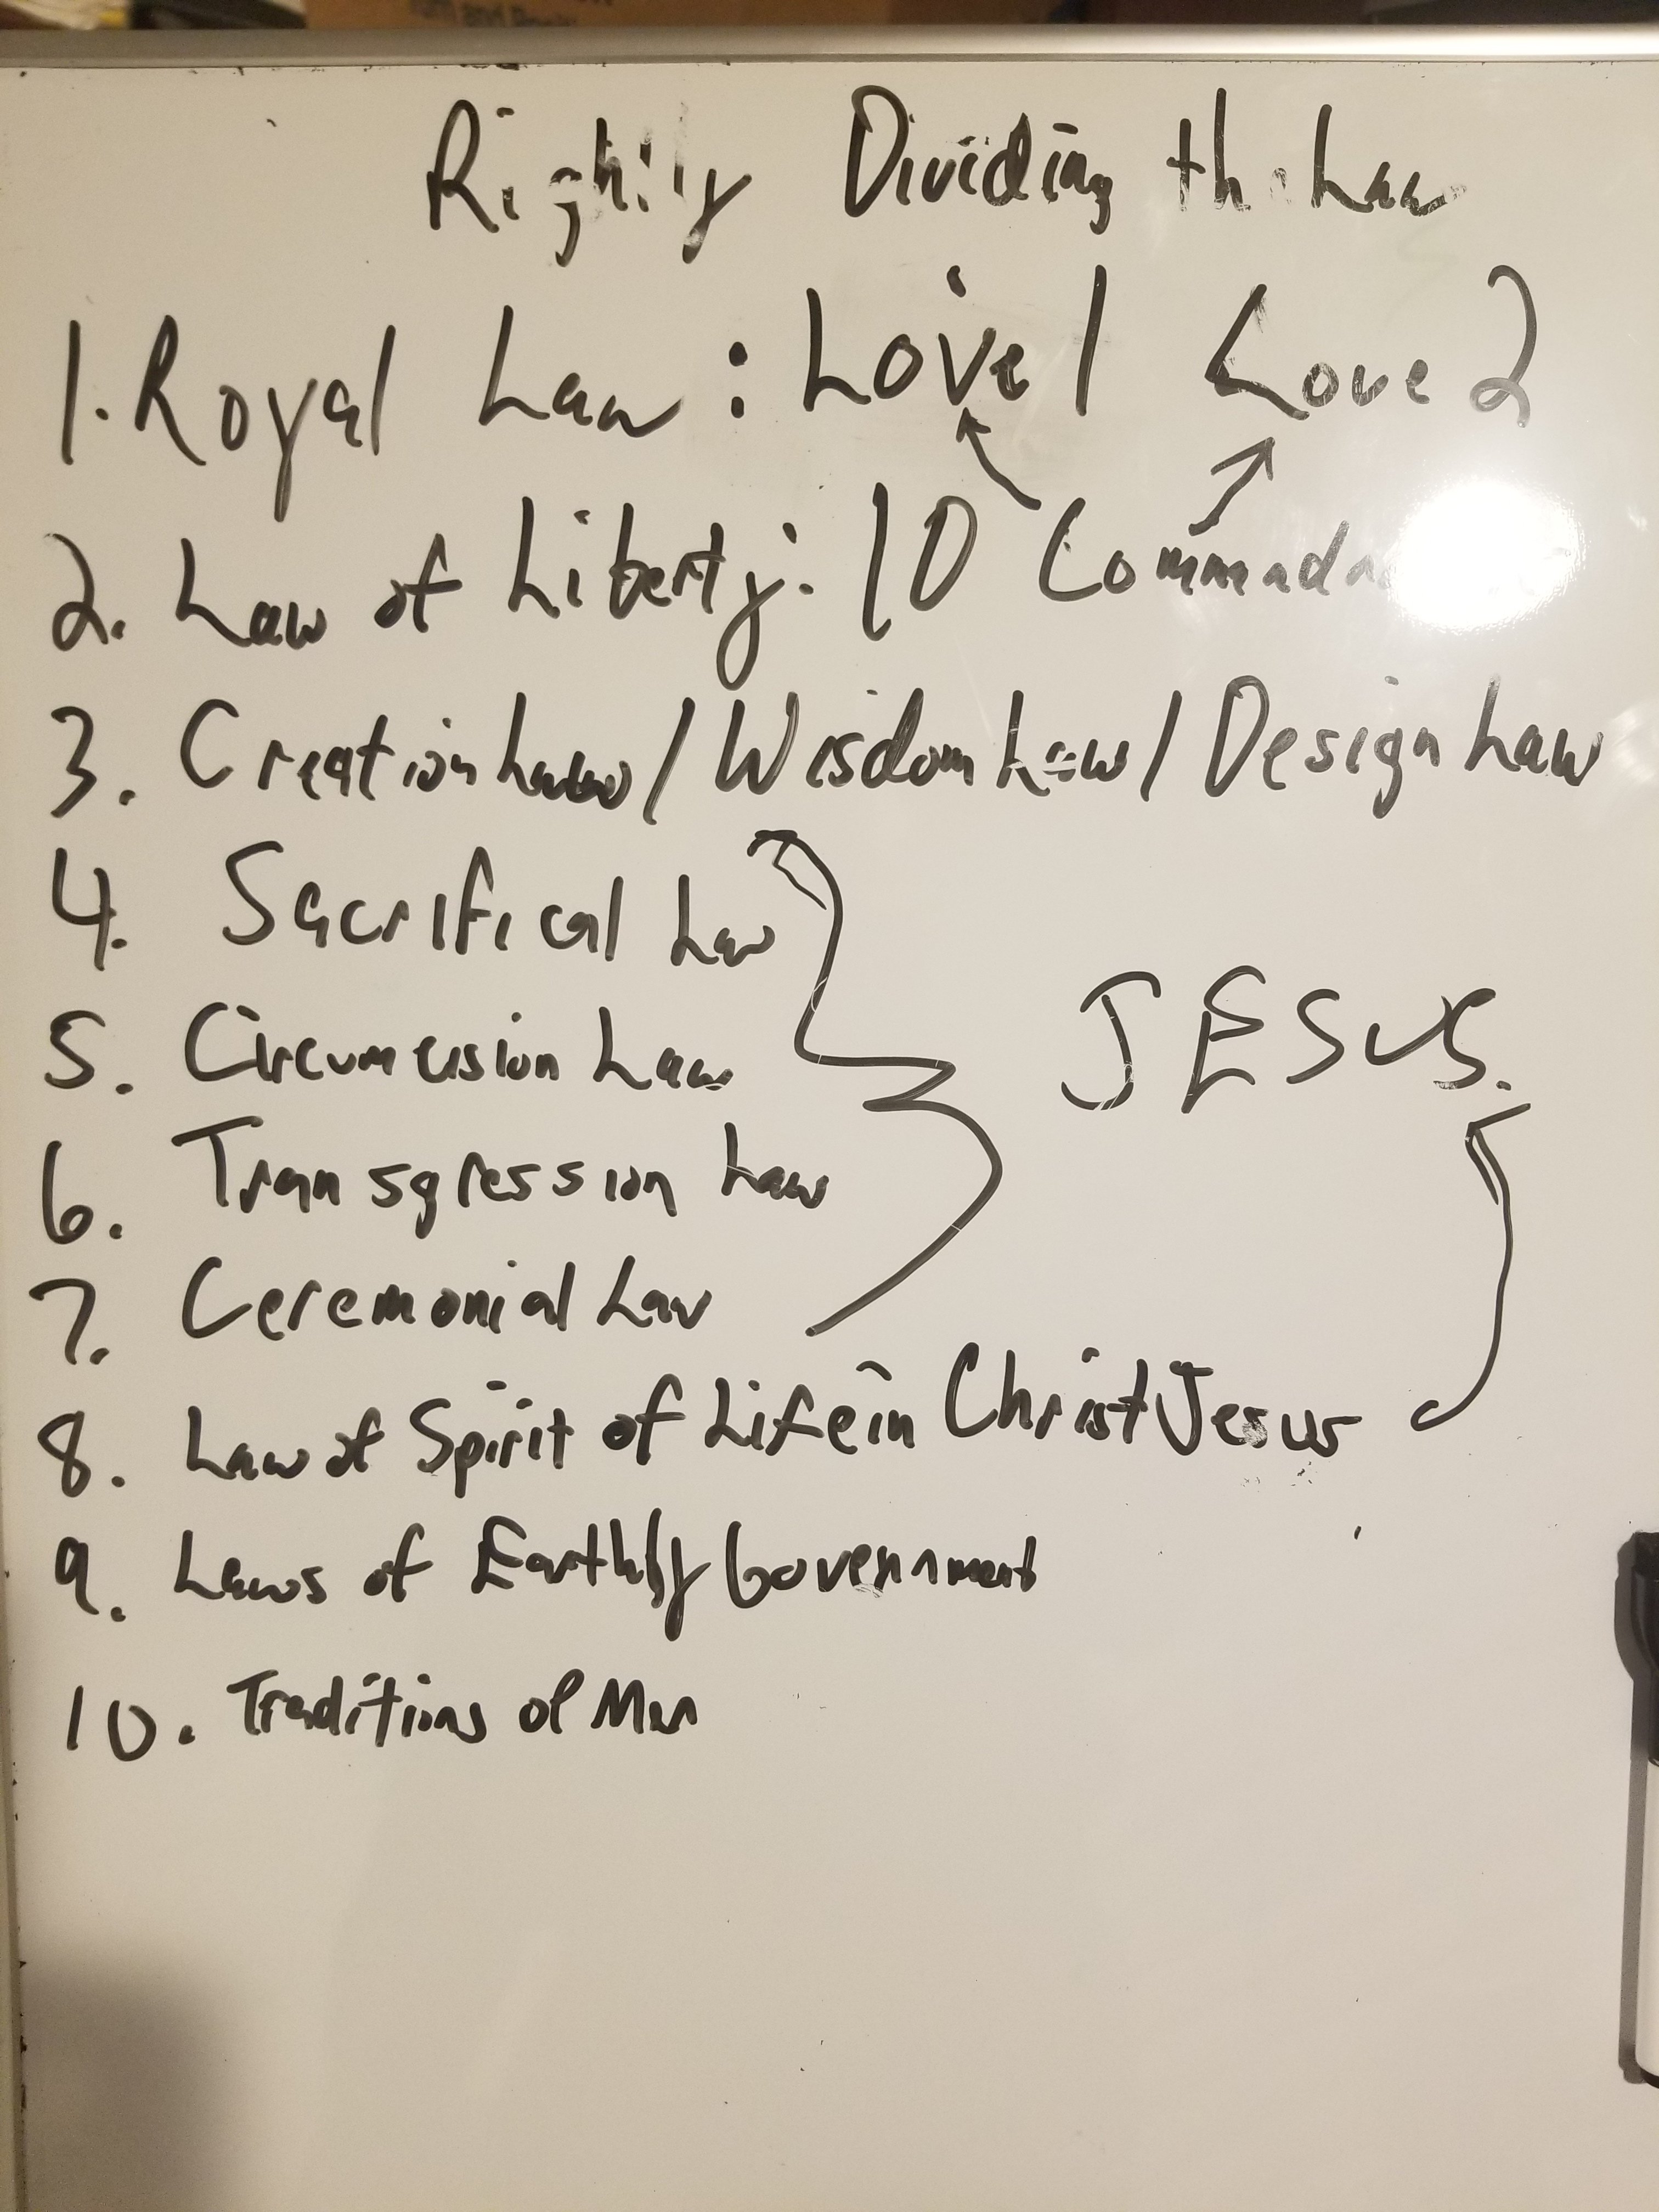 Rightly Dividing the Law
1. Royal Law : Love 1 Love 2
2. Law of Liberty: 10
3. Creation Law / Wisdom Law / Design Law
4. Sacrifical Law
5. Circumcision Law
JESUS.
6. Transgression Law
7. Ceremonial Law
8. Law of Spirit of Life in Christ Jesus
9. Laws of Earthly Government
10. Traditions of Men